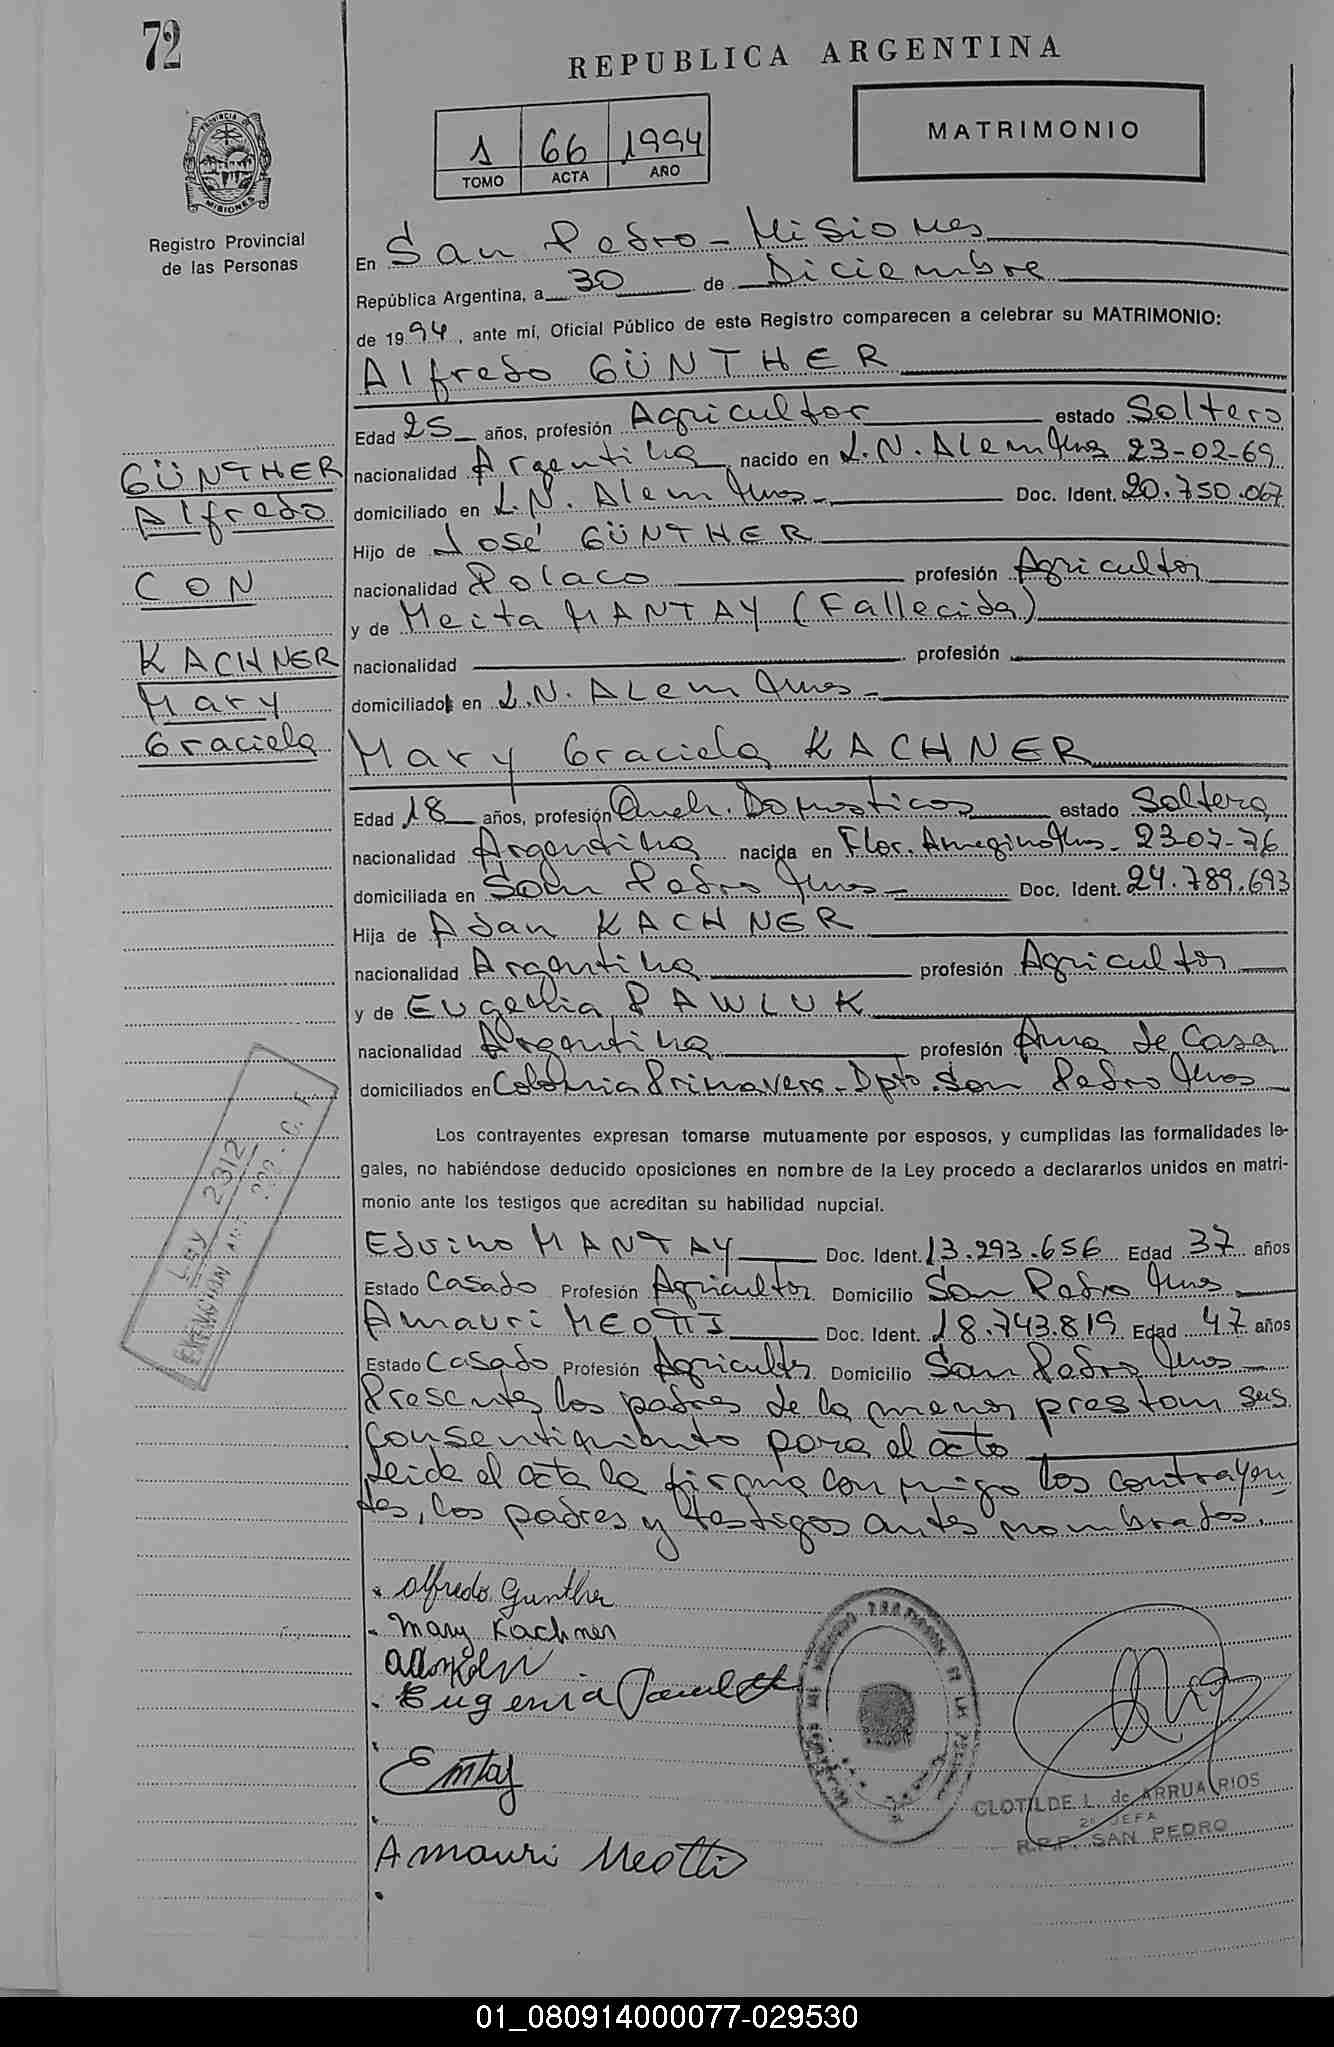 72
REPUBLICA ARGENTINA
MATRIMONIO
1 66 1994
TOMO ACTA AÑO
PROVINCIA DE MISIONES
Registro Provincial
de las Personas
En San Pedro - Misiones
República Argentina, a 30 de Diciembre
de 1994, ante mí, Oficial Público de este Registro comparecen a celebrar su MATRIMONIO:
Alfredo GÜNTHER
Edad 25 años, profesión Agricultor estado Soltero
nacionalidad Argentina nacido en L.N. Alem Mnes 23-02-69
domiciliado en L.N. Alem Mnes - Doc. Ident. 20.750.067
Hijo de José GÜNTHER
nacionalidad Polaco profesión Agricultor
y de Meita MANTAY (Fallecida)
nacionalidad profesión
domiciliado en L.N. Alem Mnes -
GÜNTHER
Alfredo
CON
KACHNER
Mary
Graciela
Mary Graciela KACHNER
Edad 18 años, profesión Queh. Domesticos estado Soltera
nacionalidad Argentina nacida en Flor. Ameghino Mnes - 23-07-76
domiciliada en San Pedro Mnes - Doc. Ident. 24.789.693
Hija de Adan KACHNER
nacionalidad Argentina profesión Agricultor
y de Eugenia PAWLUK
nacionalidad Argentina profesión Ama de Casa
domiciliados en Colonia Primavera - Dpto. San Pedro Mnes
Los contrayentes expresan tomarse mutuamente por esposos, y cumplidas las formalidades le-
gales, no habiéndose deducido oposiciones en nombre de la Ley procedo a declararlos unidos en matri-
monio ante los testigos que acreditan su habilidad nupcial.
Edvino MANTAY Doc. Ident. 13.293.656 Edad 37 años
Estado Casado Profesión Agricultor Domicilio San Pedro Mnes
Amauri MEOTTI Doc. Ident. 18.743.819 Edad 47 años
Estado Casado Profesión Agricultor Domicilio San Pedro Mnes
Presentes los padres de la menor prestan sus
consentimiento para el acto
Leida el acta la firma con migo los contrayen-
tes, los padres y testigos antes nombrados.
LEY 2312
Alfredo Gunther
Mary Kachner
Eugenia
Amauri Meotti
CLOTILDE L. de ARRUA RIOS
2ª JEFA
R.P.P. SAN PEDRO
01_080914000077-029530